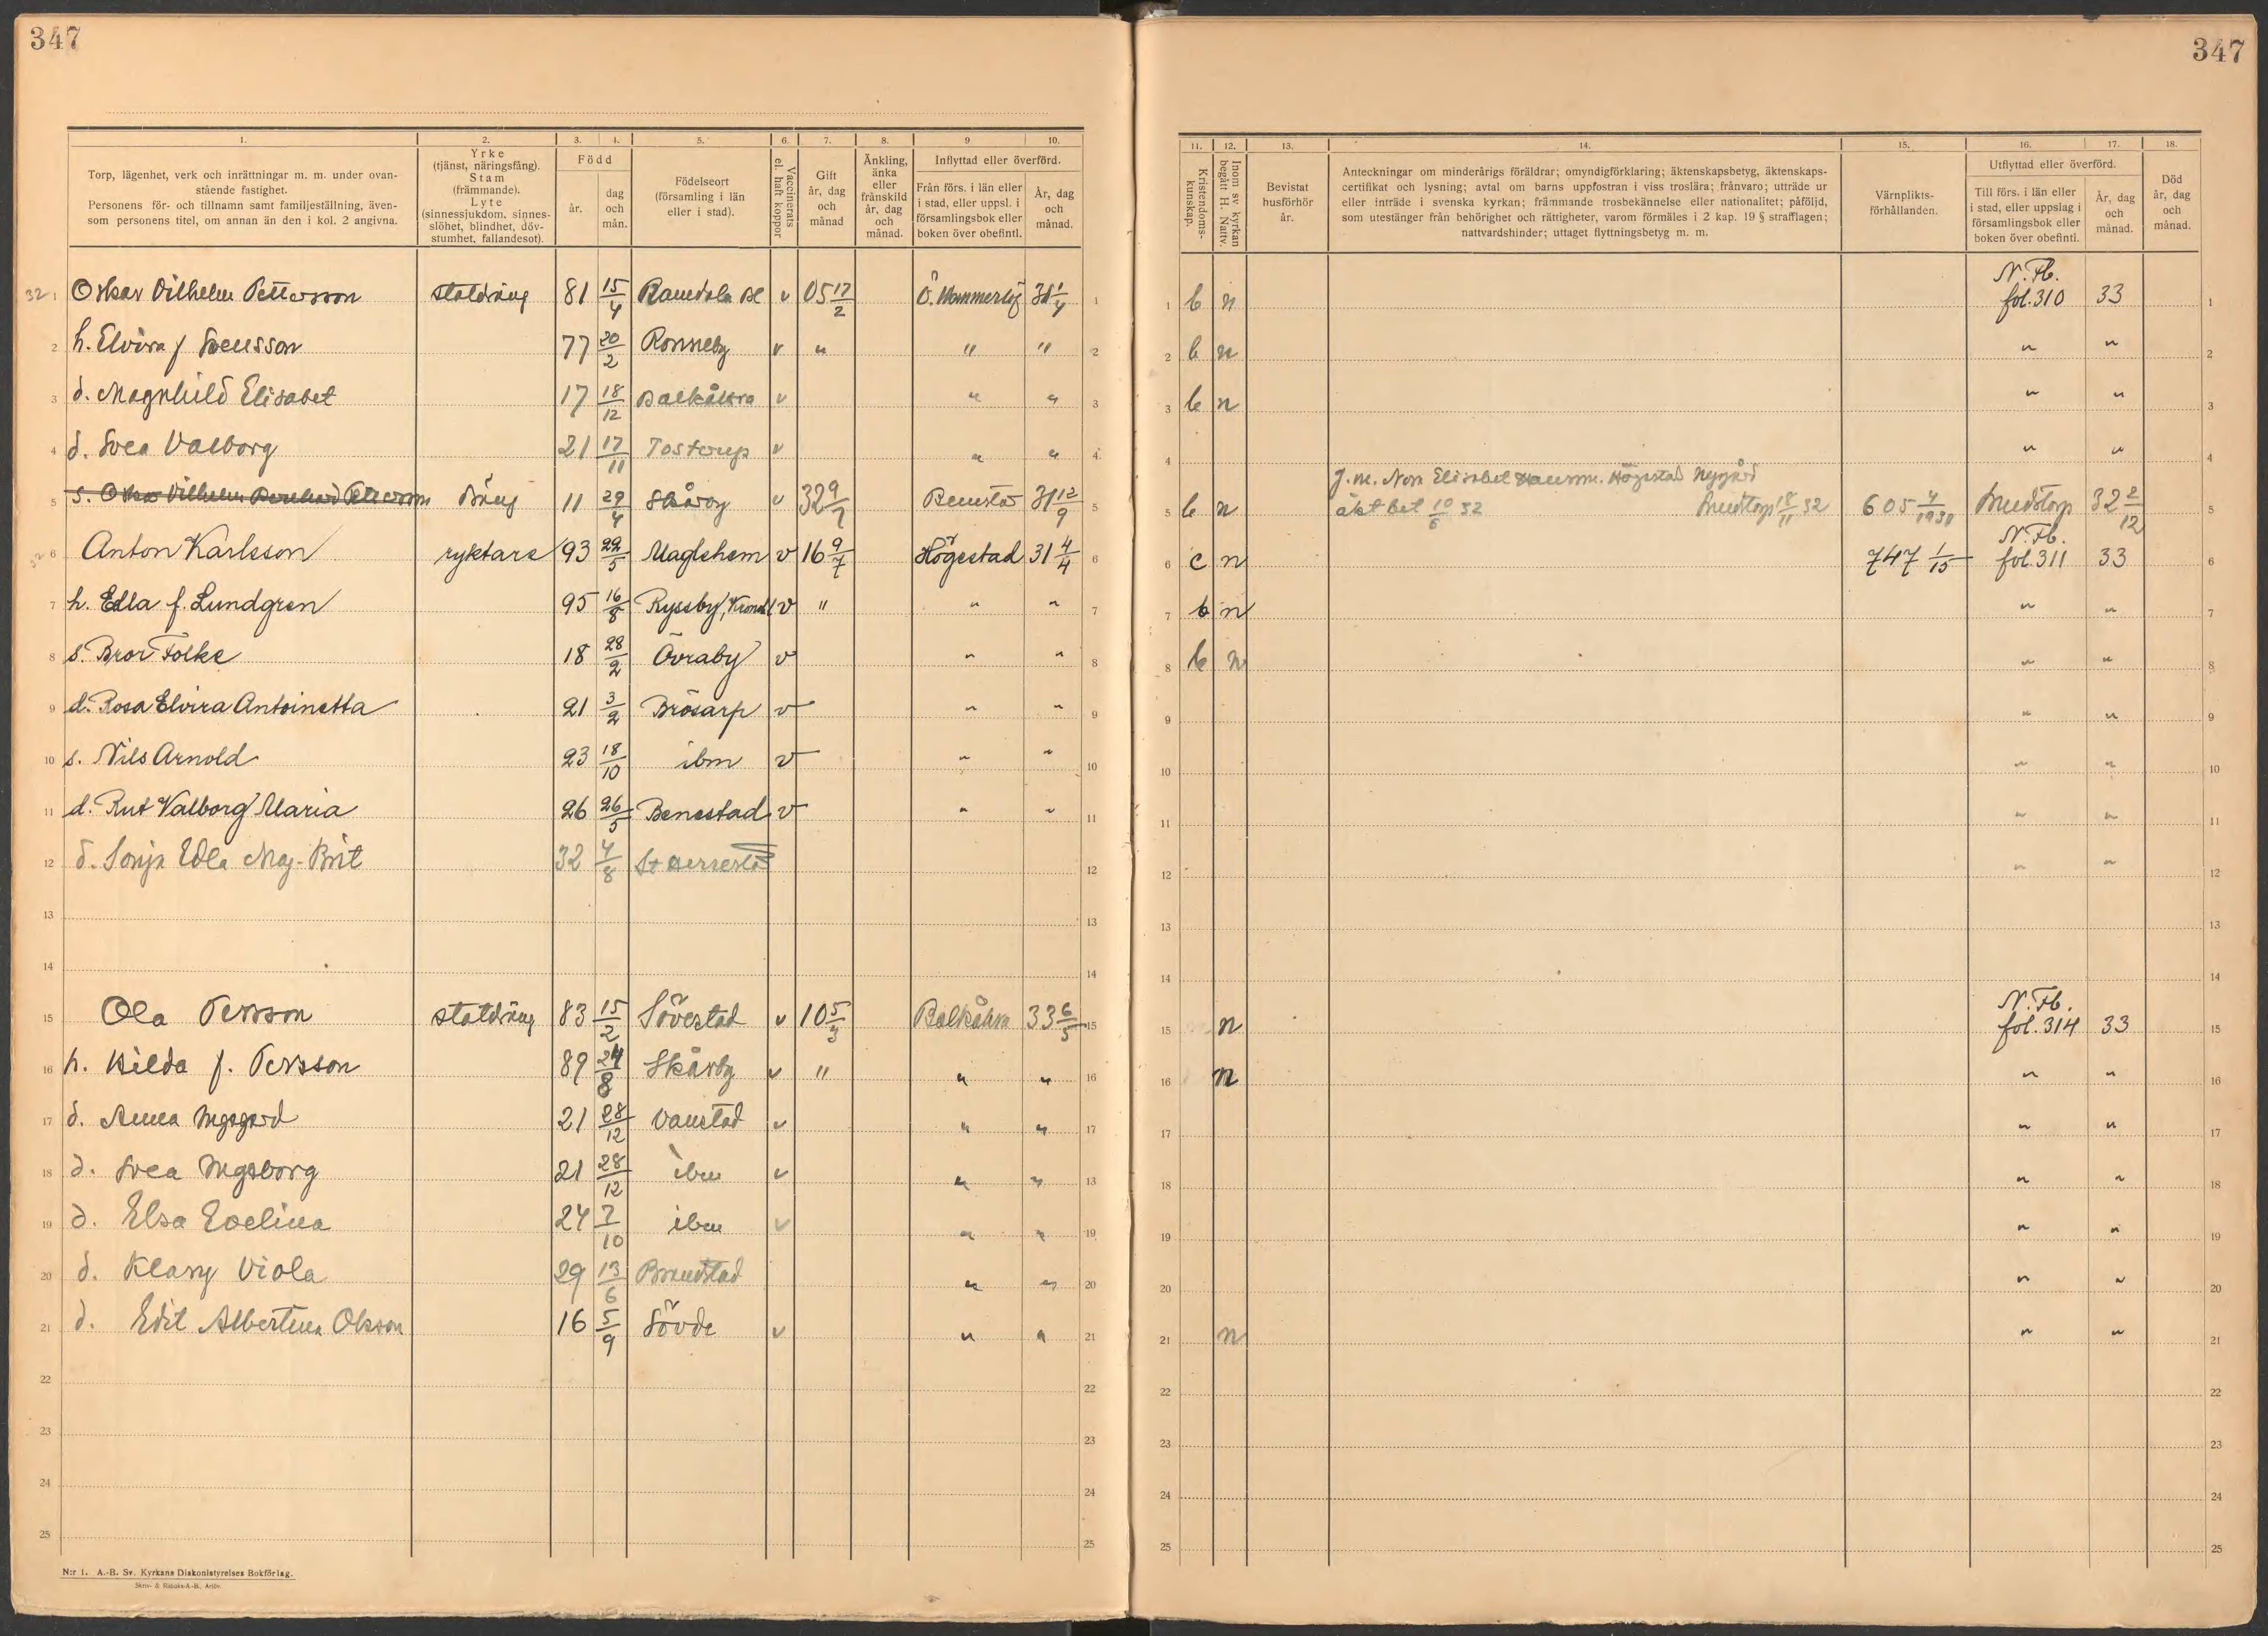 347
347
1. 2. 3. 4. 5. 6. 7. 8. 9 10.
Torp, lägenhet, verk och inrättningar m. m. under ovan-
stående fastighet.
Personens för- och tillnamn samt familjeställning, även-
som personens titel, om annan än den i kol. 2 angivna.
Yrke
(tjänst, näringsfång).
Stam
(främmande).
Lyte
(sinnessjukdom, sinnes-
slöhet, blindhet, döv-
stumhet, fallandesot).
Född
år.
dag
och
mån.
Födelseort
(församling i län
eller i stad).
Vaccinerats
el. haft koppor
Gift
år, dag
och
månad
Änkling,
änka
eller
frånskild
år, dag
och
månad.
Inflyttad eller överförd.
Från förs. i län eller
i stad, eller uppsl. i
församlingsbok eller
boken över obefintl.
År, dag
och
månad.
11. 12. 13. 14. 15. 16. 17. 18.
Kristendoms-
kunskap.
Inom sv. kyrkan
begått H. Nattv.
Bevistat
husförhör
år.
Anteckningar om minderårigs föräldrar; omyndigförklaring; äktenskapsbetyg, äktenskaps-
certifikat och lysning; avtal om barns uppfostran i viss troslära; frånvaro; utträde ur
eller inträde i svenska kyrkan; främmande trosbekännelse eller nationalitet; påföljd,
som utestänger från behörighet och rättigheter, varom förmäles i 2 kap. 19 § strafflagen;
nattvardshinder; uttaget flyttningsbetyg m. m.
Värnplikts-
förhållanden.
Utflyttad eller överförd.
Till förs. i län eller
i stad, eller uppslag i
församlingsbok eller
boken över obefintl.
År, dag
och
månad.
Död
år, dag
och
månad.
32 1 Oskar Vilhelm Pettersson statdräng 81 15/4 Ramdala Bl v 05 17/2 Ö. 31 1/4 1
1 b n N. Fb. fol. 310 33 1
2 h. Elvira f Svensson 77 20/2 Ronneby v " " " 2
2 b n " " 2
3 d. Magnhild Elisabet 17 18/12 Balkåkra v " " 3
3 b n " " 3
4 d. Svea Valborg 21 17/11 Tosterup v " " 4
4 " " 4
5 s. Oskar Vilhelm Bernhard Pettersson dräng 11 29/4 Skårby v 32 9/7 31 12/9 5
5 b n G. m. Elisabet Högestad
äkt bet 10/6 32 18/11 32 605 4/1931 32 2/12 5
32 6 Anton Karlsson ryktare 93 22/5 Maglehem v 16 9/7 Högestad 31 4/4 6
6 c n 747 1/15 N. Fb. fol. 311 33 6
7 h. Edla f. Lundgren 95 16/8 Ryssby, v " " " 7
7 b n " " 7
8 s. Bror Folke 18 28/2 Övraby v " " 8
8 b n " " 8
9 d. Rosa Elvira Antoinetta 21 3/2 Brösarp v " " 9
9 " " 9
10 s. Nils Arnold 23 18/10 ibm v " " 10
10 " " 10
11 d. Rut Valborg Maria 26 26/5 Benestad v " " 11
11 " " 11
12 d. Sonja Edla Maj-Brit 32 4/8 St Herrestad 12
12 " " 12
13 13
13 13
14 14
14 14
15 Ola Persson statdräng 83 15/2 Sövestad v 10 5/3 Balkåkra 33 6/5 15
15 n N. Fb. fol. 314 33 15
16 h. Hilda f. Persson 89 24/8 Skårby v " " " 16
16 n " " 16
17 d. Anna Ingegerd 21 28/12 Vanstad v " " 17
17 " " 17
18 d. Svea Ingeborg 21 28/12 ibm v " " 18
18 " " 18
19 d. Elsa Evelina 24 7/10 ibm v " " 19
19 " " 19
20 d. Klary Viola 29 13/6 Brandstad " " 20
20 " " 20
21 d. Edit Albertina Olsson 16 5/9 Sövde v " " 21
21 n " " 21
22 22
22 22
23 23
23 23
24 24
24 24
25 25
25 25
N:r 1. A.-B. Sv. Kyrkans Diakonistyrelses Bokförlag.